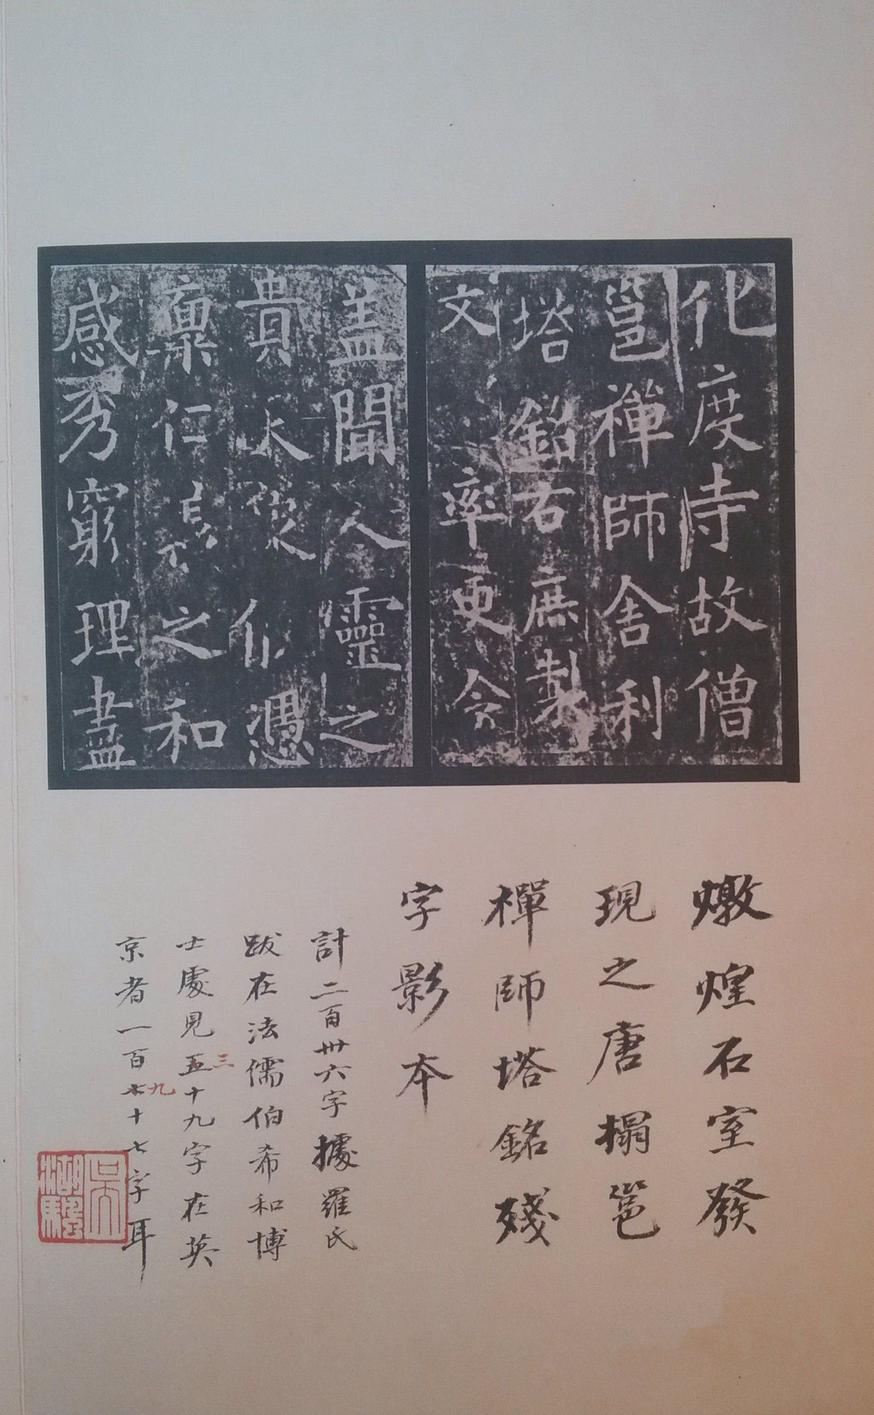 化度寺故僧
邕禪師舍利
塔銘右庶製
文率更令
盖聞人靈之
貴天從仰憑
稟仁義之和
感秀窮理盡
燉煌石室發
現之唐榻邕
禪師塔銘殘
字影本
計二百卅六字據羅氏
跋在法儒伯希和博
士處見五十九字在英
三
京者一百七十七字耳
九